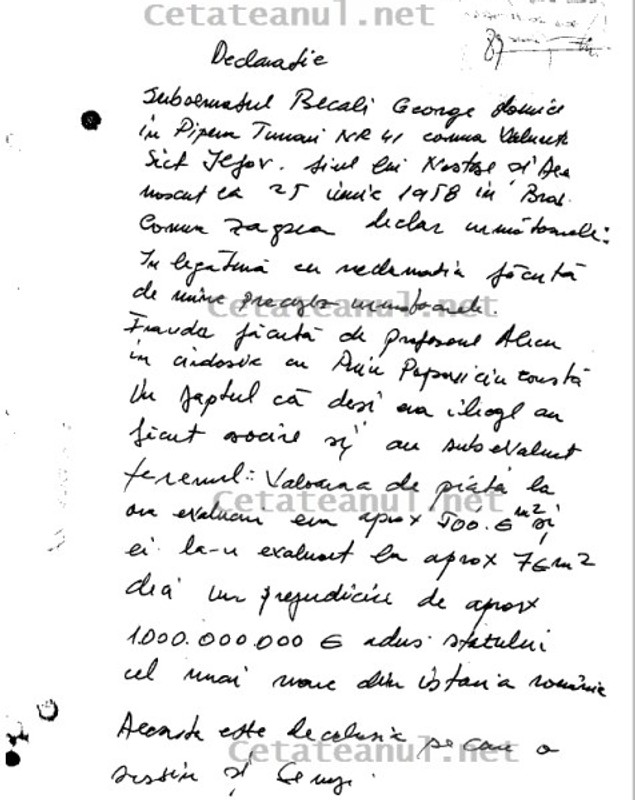 Cetateanul.net
89
Declarație
Subsemnatul Becali George domic
în Pipera Tunari NR 41 comuna Voluntari
Sect Ilfov. fiul lui Nastase și
născut la 25 iunie 1958 în Brăi.
Comuna Zagna declar următoarele:
In legătură cu reclamatia făcută
de mine precizez urmatoarele.
Cetateanul.net
Frauda făcută de profesorul Alecu
in cîrdasie cu Puiu Popoviciu constă
în faptul că desi era ilegal au
făcut asocire și au subevaluat
terenul: Valoarea de piață la
Cetateanul.net
ora evaluari era aprox 500.€ m2 și
ei l-au evaluat la aprox 7€ m2
deci un prejudiciu de aprox
1.000.000.000 € adus statului
cel mai mare din istoria româniei
Aceasta este declaratia pe care o
Cetateanul.net
sustin și